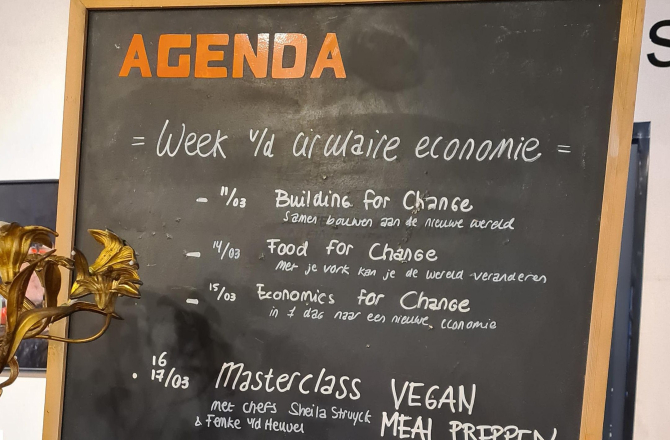 AGENDA
= Week v/d circulaire economie =
- 11/03 Building for Change
Samen bouwen aan de nieuwe wereld
- 14/03 Food for Change
met je vork kan je de wereld veranderen
- 15/03 Economics for Change
in 1 dag naar een nieuwe economie
16
• 17/03 Masterclass VEGAN
met chefs Sheila Struyck MEAL PREPPEN
& Femke v/d Heuvel
S